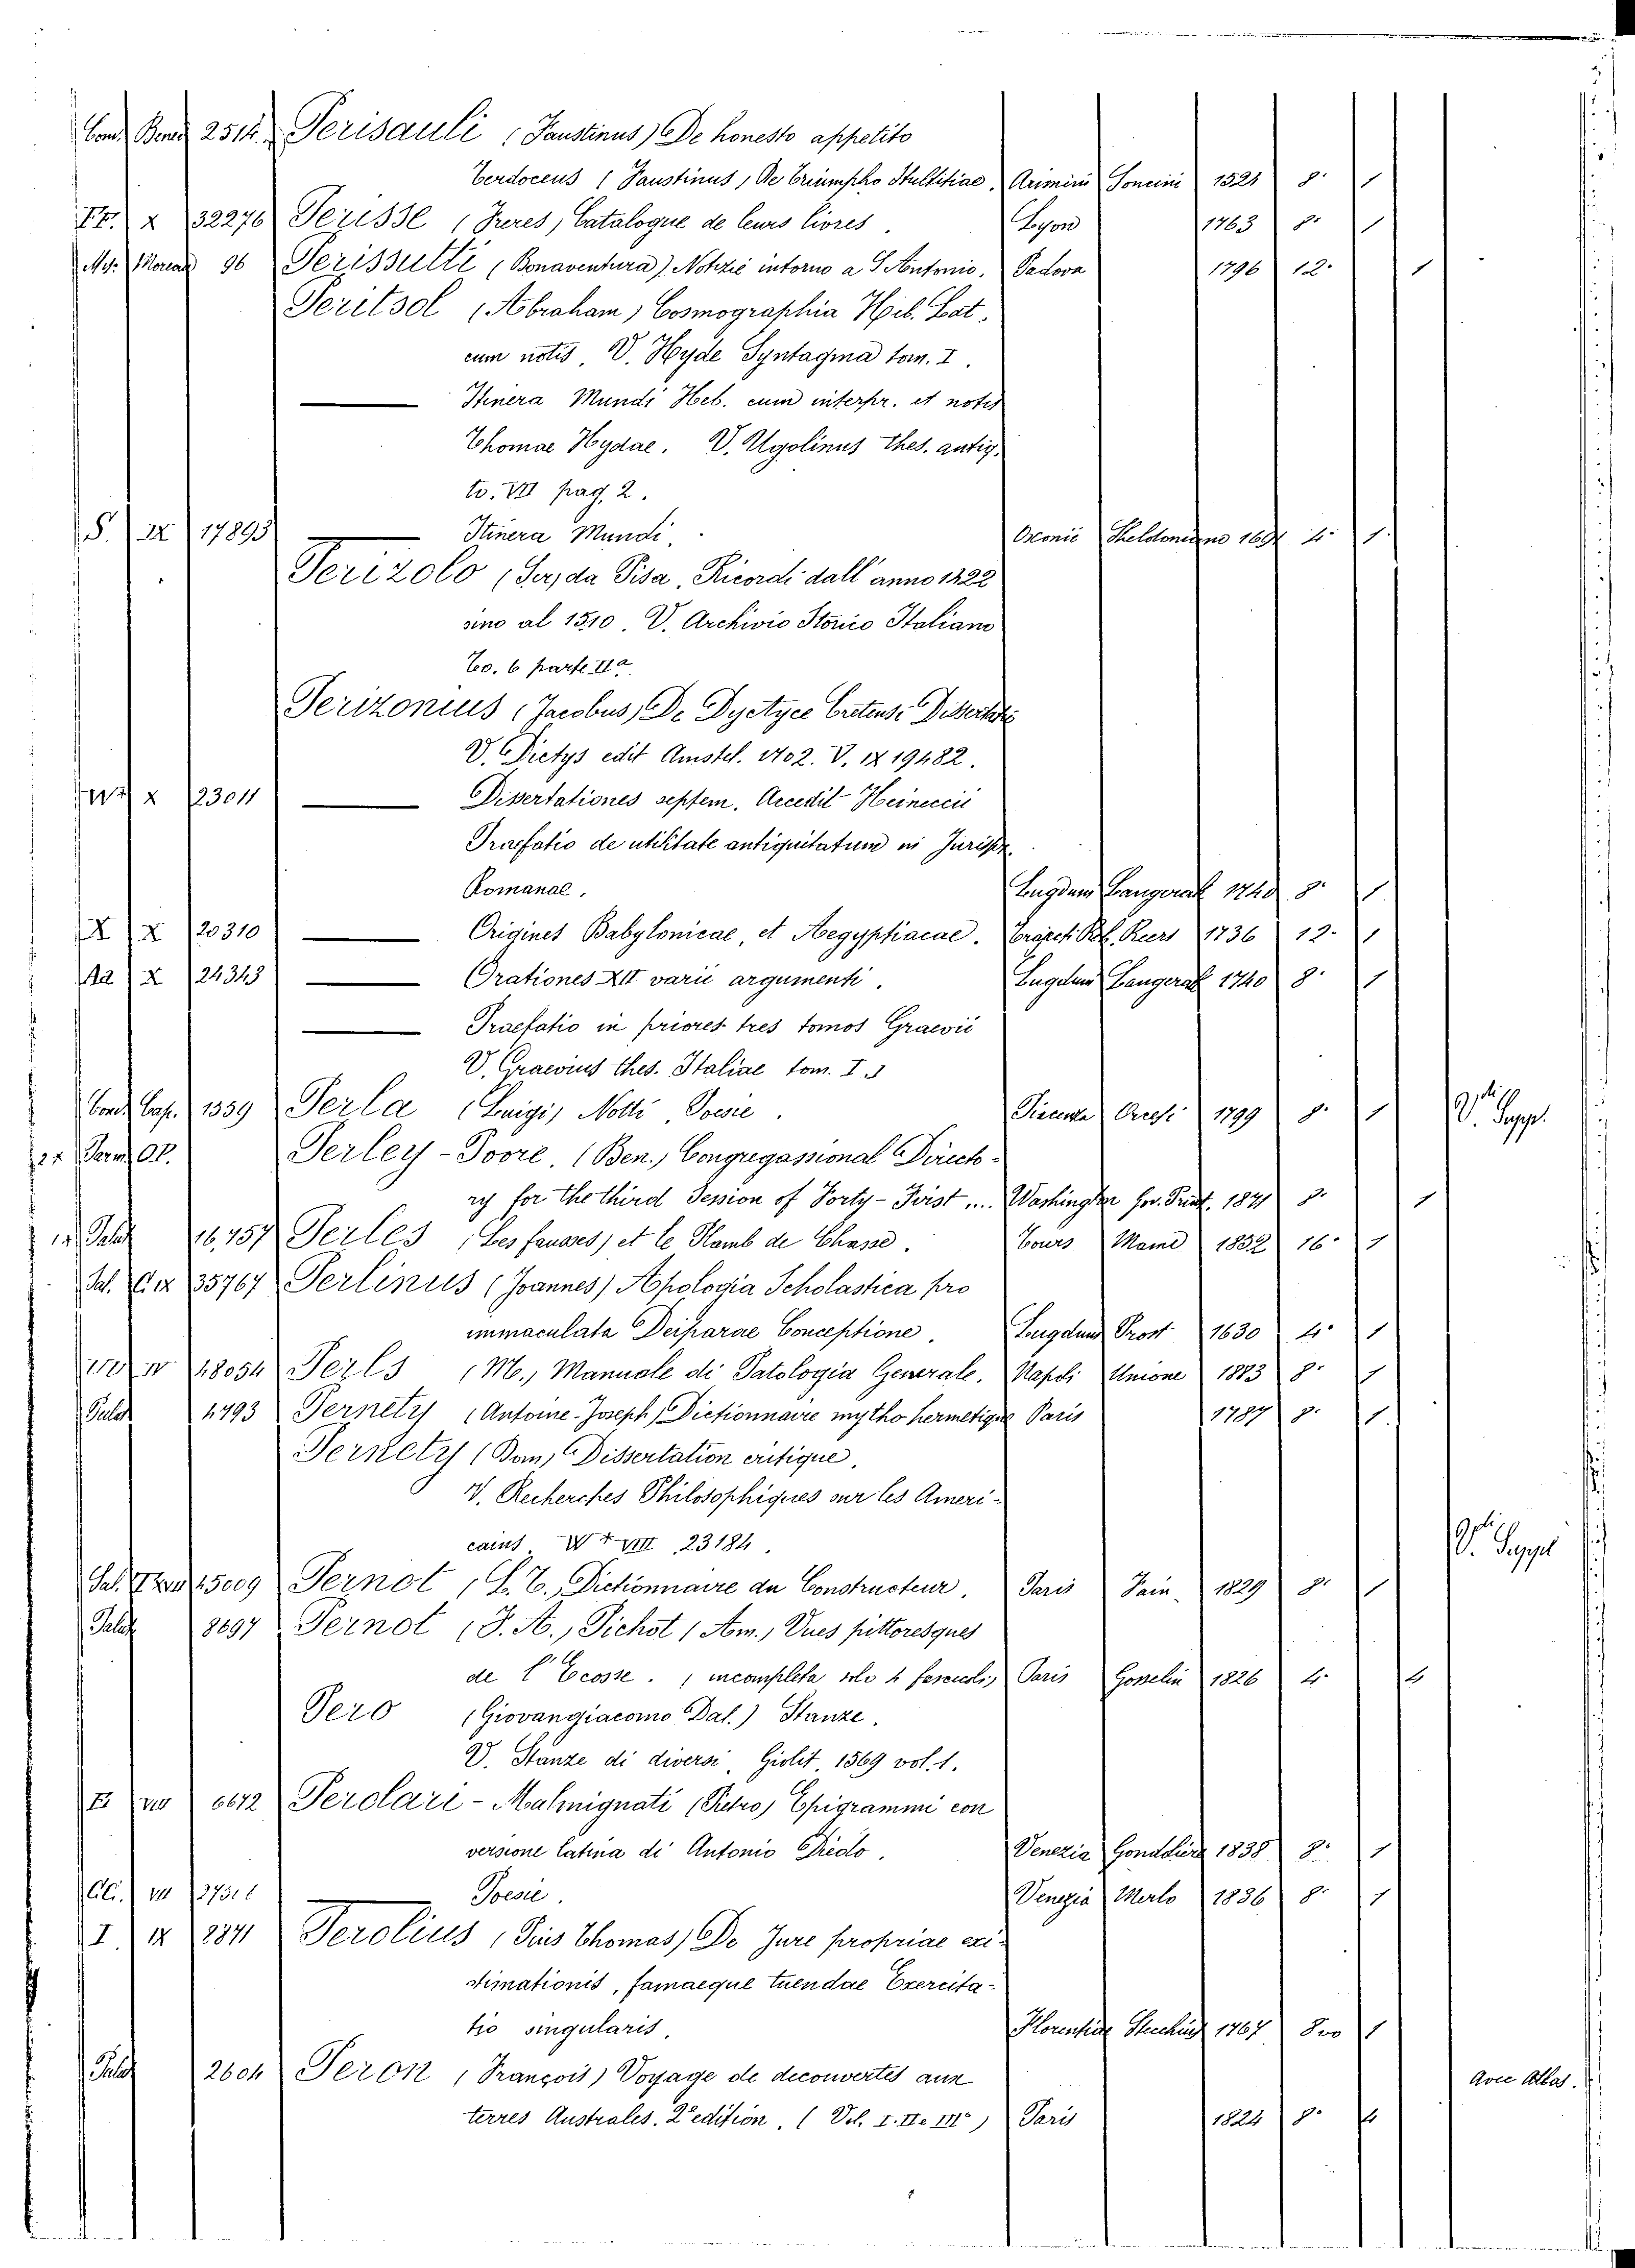 Cons. Rend. 2514. Perisauli (Faustinus) De honesto appetito
Terdoceus (Faustinus, De Triumpho Stultitiae. Arimini Soncini 1524 8° 1
X 32276 Perisse (Freres, Catalogue de leurs livres. Lyon 1763 8° 1
96 Perissutti (Bonaventura) Notizie intorno a S. Antonio. Padova 1796 12° 1
Peritsol (Abraham) Cosmographia Heb. Lat.
cum notis. V. Hyde Syntagma tom. I.
—— Itinera Mundi Heb. cum interpr. et notis
Thomae Hydae. V. Ugolinus thes. antiq.
to. VII pag. 2.
S. IX 17893 —— Itinera Mundi. Oxonii Sheldoniano 1691 4° 1.
Perizolo (Ser, da Pisa, Ricordi dall' anno 1422
sino al 1510. V. Archivio Storico Italiano
To. 6 parte IIa
Perizonius (Jacobus) De Dyctyce Cretensi Dissertatio
V. Dictys edit Amstel. 1702. V. IX 19482.
X 23011 —— Dissertationes septem. Accedit Heineccii
Praefatio de utilitate antiquitatum in Jurispr.
Romanae. Lugdun Langerak 1740 8° 1
X X 20310 —— Origines Babylonicae, et Aegyptiacae. Trajecti Bat. Kurs 1736 12° 1
Aa X 24343 —— Orationes XII varii argumenti. Lugdun Langerak 1740 8° 1
—— Praefatio in priores tres tomos Graevii
V. Graevius thes. Italiae tom. I.
Cons. Cap. 1359 Perla (Luigi) Notti Poesie. Piacenza Orcesi 1799 8° 1 V. Suppl.
Perley - Poore. (Ben., Congregassional Directo-
ry for the third Session of Forty-First .... Washington Gov. Print. 1871 8° 1
Palat 16,457 Perles (Les fausses) et le Plomb de Chasse. Tours Mame 1852 16° 1
35767 Perlinus (Joannes) Apologia Scholastica pro
immaculata Deiparae Conceptione. Lugdun Prost 1630 4° 1
IV 48054 Perls (M., Manuale di Patologia Generale. Napoli Unione 1883 8° 1
Palat 4793 Pernety (Antoine-Joseph) Dictionnaire mytho hermetique Paris 1787 8° 1.
Pernety (Dom) Dissertation critique.
V. Recherches Philosophiques sur les Ameri-
cains. W + VIII 23184. V. Suppl
5009 Pernot (L. T., Dictionnaire du Constructeur. Paris Pain 1829 8° 1
Palat 8697 Pernot (F. A., Pichot (Am.) Vues pittoresques
de l'Ecosse. (incompleta solo 4 fascicoli) Paris Gosselin 1826 4° 4
Pero (Giovangiacomo Dal.) Stanze.
V. Stanze di diversi Giolit. 1569 vol. 1.
VIII 6672 Perolari - Malmignati (Pietro) Epigrammi con
versione latina di Antonio Diedo. Venezia Gondoliere 1838 8° 1
VII —— Poesie. Venezia Merlo 1836 8° 1
I. IX 8841 Perolius (Pius Thomas) De Jure propriae exi-
stimationis, famaeque tuendae Exercita-
tio singularis. Florentiae Stecchius 1767 8vo 1
Palat 2604 Peron (François) Voyage de decouvertes aux Avec Atlas.
terres Australes. 2e edition. (Vol. I. II e III°) Paris 1824 8° 4